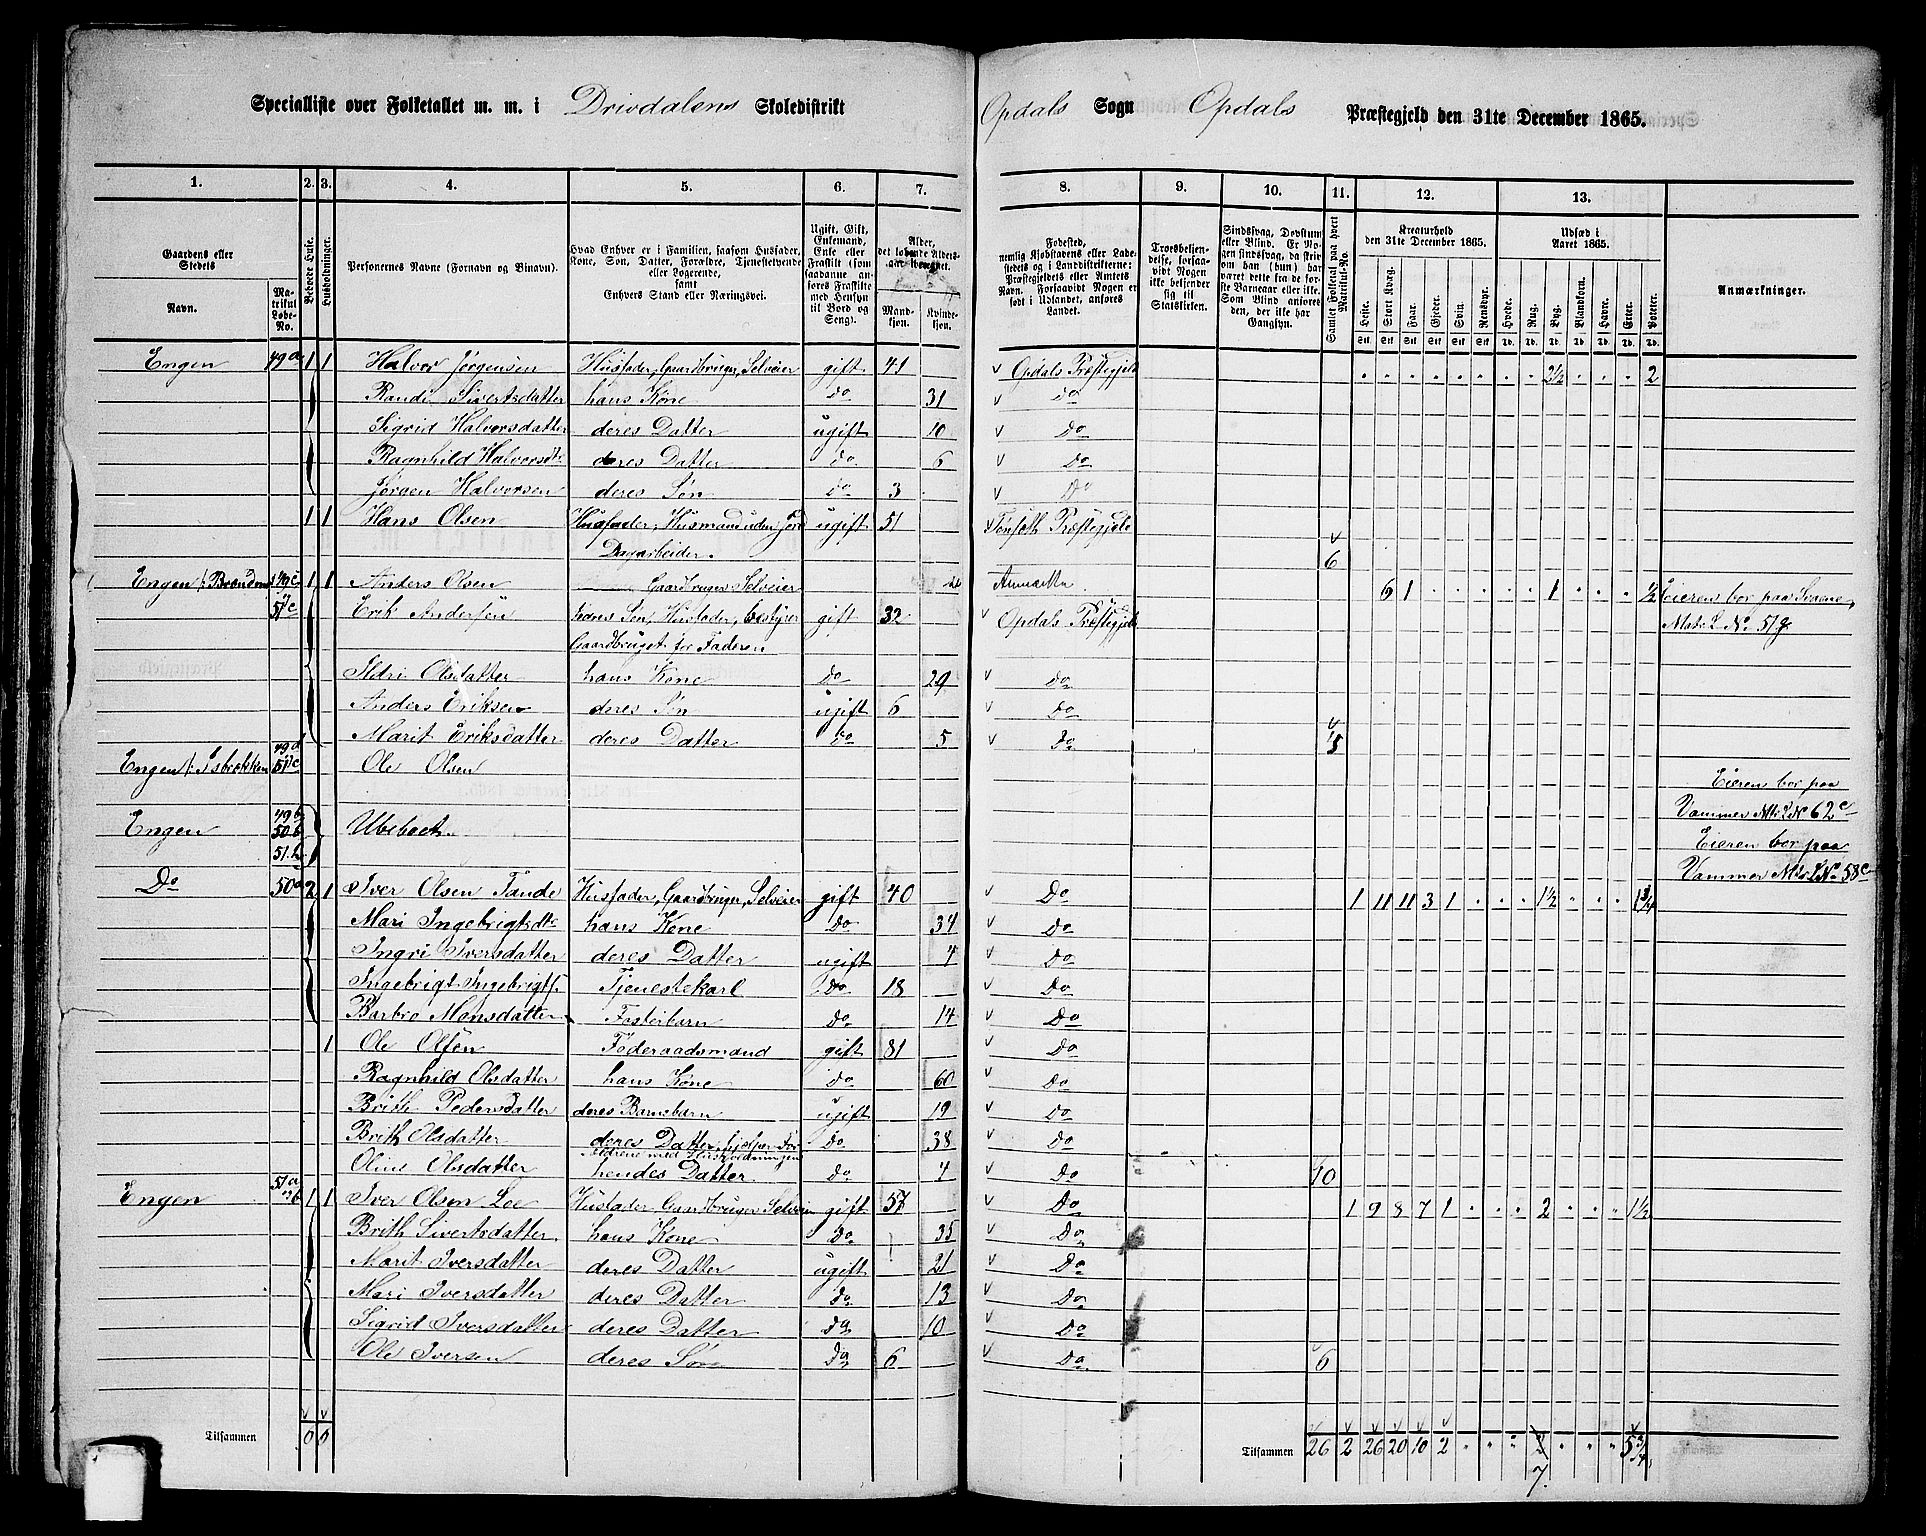 Specialliste over Folketallet m. m. i Drivdalens Skoledistrikt Opdals Sogn Opdals Præstegjeld den 31te December 1865.
1. 2. 3. 4. 5. 6. 7. 8. 9. 10. 11. 12. 13.
Gaardens eller Stedets
Navn.
Matrikul Løbe-No.
Beboede Huse.
Husholdninger.
Personernes Navne (Fornavn og Binavn).
Hvad Enhver er i Familien, saasom Husfader, Kone, Søn, Datter, Forældre, Tjenestetyende eller Logerende, samt Enhvers Stand eller Næringsvei.
Ugift, Gift, Enkemand, Enke eller Fraskilt (som saadanne anføres Fraskilte med Hensyn til Bord og Seng).
Alder, det løbende Aldersaar iberegnet.
Mandkjøn.
Kvindekjøn.
Fødested, nemlig Kjøbstadens eller Ladestedets og i Landdistrikterne: Præstegjeldets eller Amtets Navn. Forsaavidt Nogen er født i Udlandet, anføres Landet.
Troesbekjendelse, forsaavidt Nogen ikke bekjender sig til Statskirken.
Sindssvag, Døvstum eller Blind. Er Nogen sindssvag, da skrives om han (hun) har været dette fra de første Barneaar eller ikke. Som Blind anføres den, der ikke har Gangsyn.
Samlet Folketal paa hvert Matrikul-No.
Kreaturhold den 31te December 1865.
Heste. Stort Kvæg. Faar. Gjeder. Svin. Rensdyr.
Udsæd i Aaret 1865.
Hvede. Rug. Byg. Blandkorn. Havre. Erter. Poteter.
Anmærkninger.
Engen 49a 1 1 Halvor Jørgensen Husfader, Gaardbruger, Selveier gift 41 Opdals Præstegjeld 2½ 2
Randi Sivertsdatter hans Kone Do 31 Do
Sigrid Halvorsdatter deres Datter ugift 10 Do
Ragnhild Halvorsdtr deres Datter Do 6 Do
Jørgen Halvorsen deres Søn Do 3 Do
1 1 Hans Olsen Husfader, Husmand uden Jord ugift 51 Præstegjeld
Dagarbeider. 6
Engen 49c 1 1 Anders Olsen Gaardbruger Selveier 6 1 1 ½ Eieren bor paa
51c Erik Andersen hans Søn, Husfader, bestyrer gift 32 Opdals Præstegjeld Mat. L No. 51g.
Gaardbruget for Faderen
Ildri Olsdatter hans Kone Do 29 Do
Anders Eriksen deres Søn ugift 6 Do
Marit Eriksdatter deres Datter Do 5 Do 5
Engen 49d 51c Ole Olsen Eieren bor paa
Vammer M. L No 62c
Engen 49b 50b 51h Ubeboet. Eieren bor paa
Vammer M. L No. 58c
Do 50a 2 1 Iver Olsen Tande Husfader, Gaardbruger, Selveier gift 40 Do 1 11 11 3 1 1½ 1¾
Mari Ingebrigtsdtr hans Kone Do 34 Do
Ingri Iversdatter deres Datter ugift 4 Do
Ingebrigt Ingebrigts. Tjenestekarl Do 18 Do
Barbro Monsdatter Fosterbarn Do 14 Do
1 Ole Olsen Føderaadsmand gift 81 Do
Ragnhild Olsdatter hans Kone Do 60 Do
Brith Pedersdatter deres Barnebarn ugift 19 Do
Brith Olsdatter deres Datter, hjælper Forældrene med Husholdningen Do 38 Do
Oline Olsdatter hendes Datter Do 4 Do 10
Engen 51a 1 1 Iver Olsen Loe Husfader Gaardbruger Selveier gift 57 Do 1 9 8 7 1 2 1½
Brith Sivertsdatter hans Kone Do 35 Do
Marit Iversdatter deres Datter ugift 21 Do
Mari Iversdatter deres Datter Do 13 Do
Sigrid Iversdatter deres Datter Do 10 Do
Ole Iversen deres Søn Do 6 Do 6
Tilsammen Tilsammen 26 2 26 20 10 2 7. 5¾